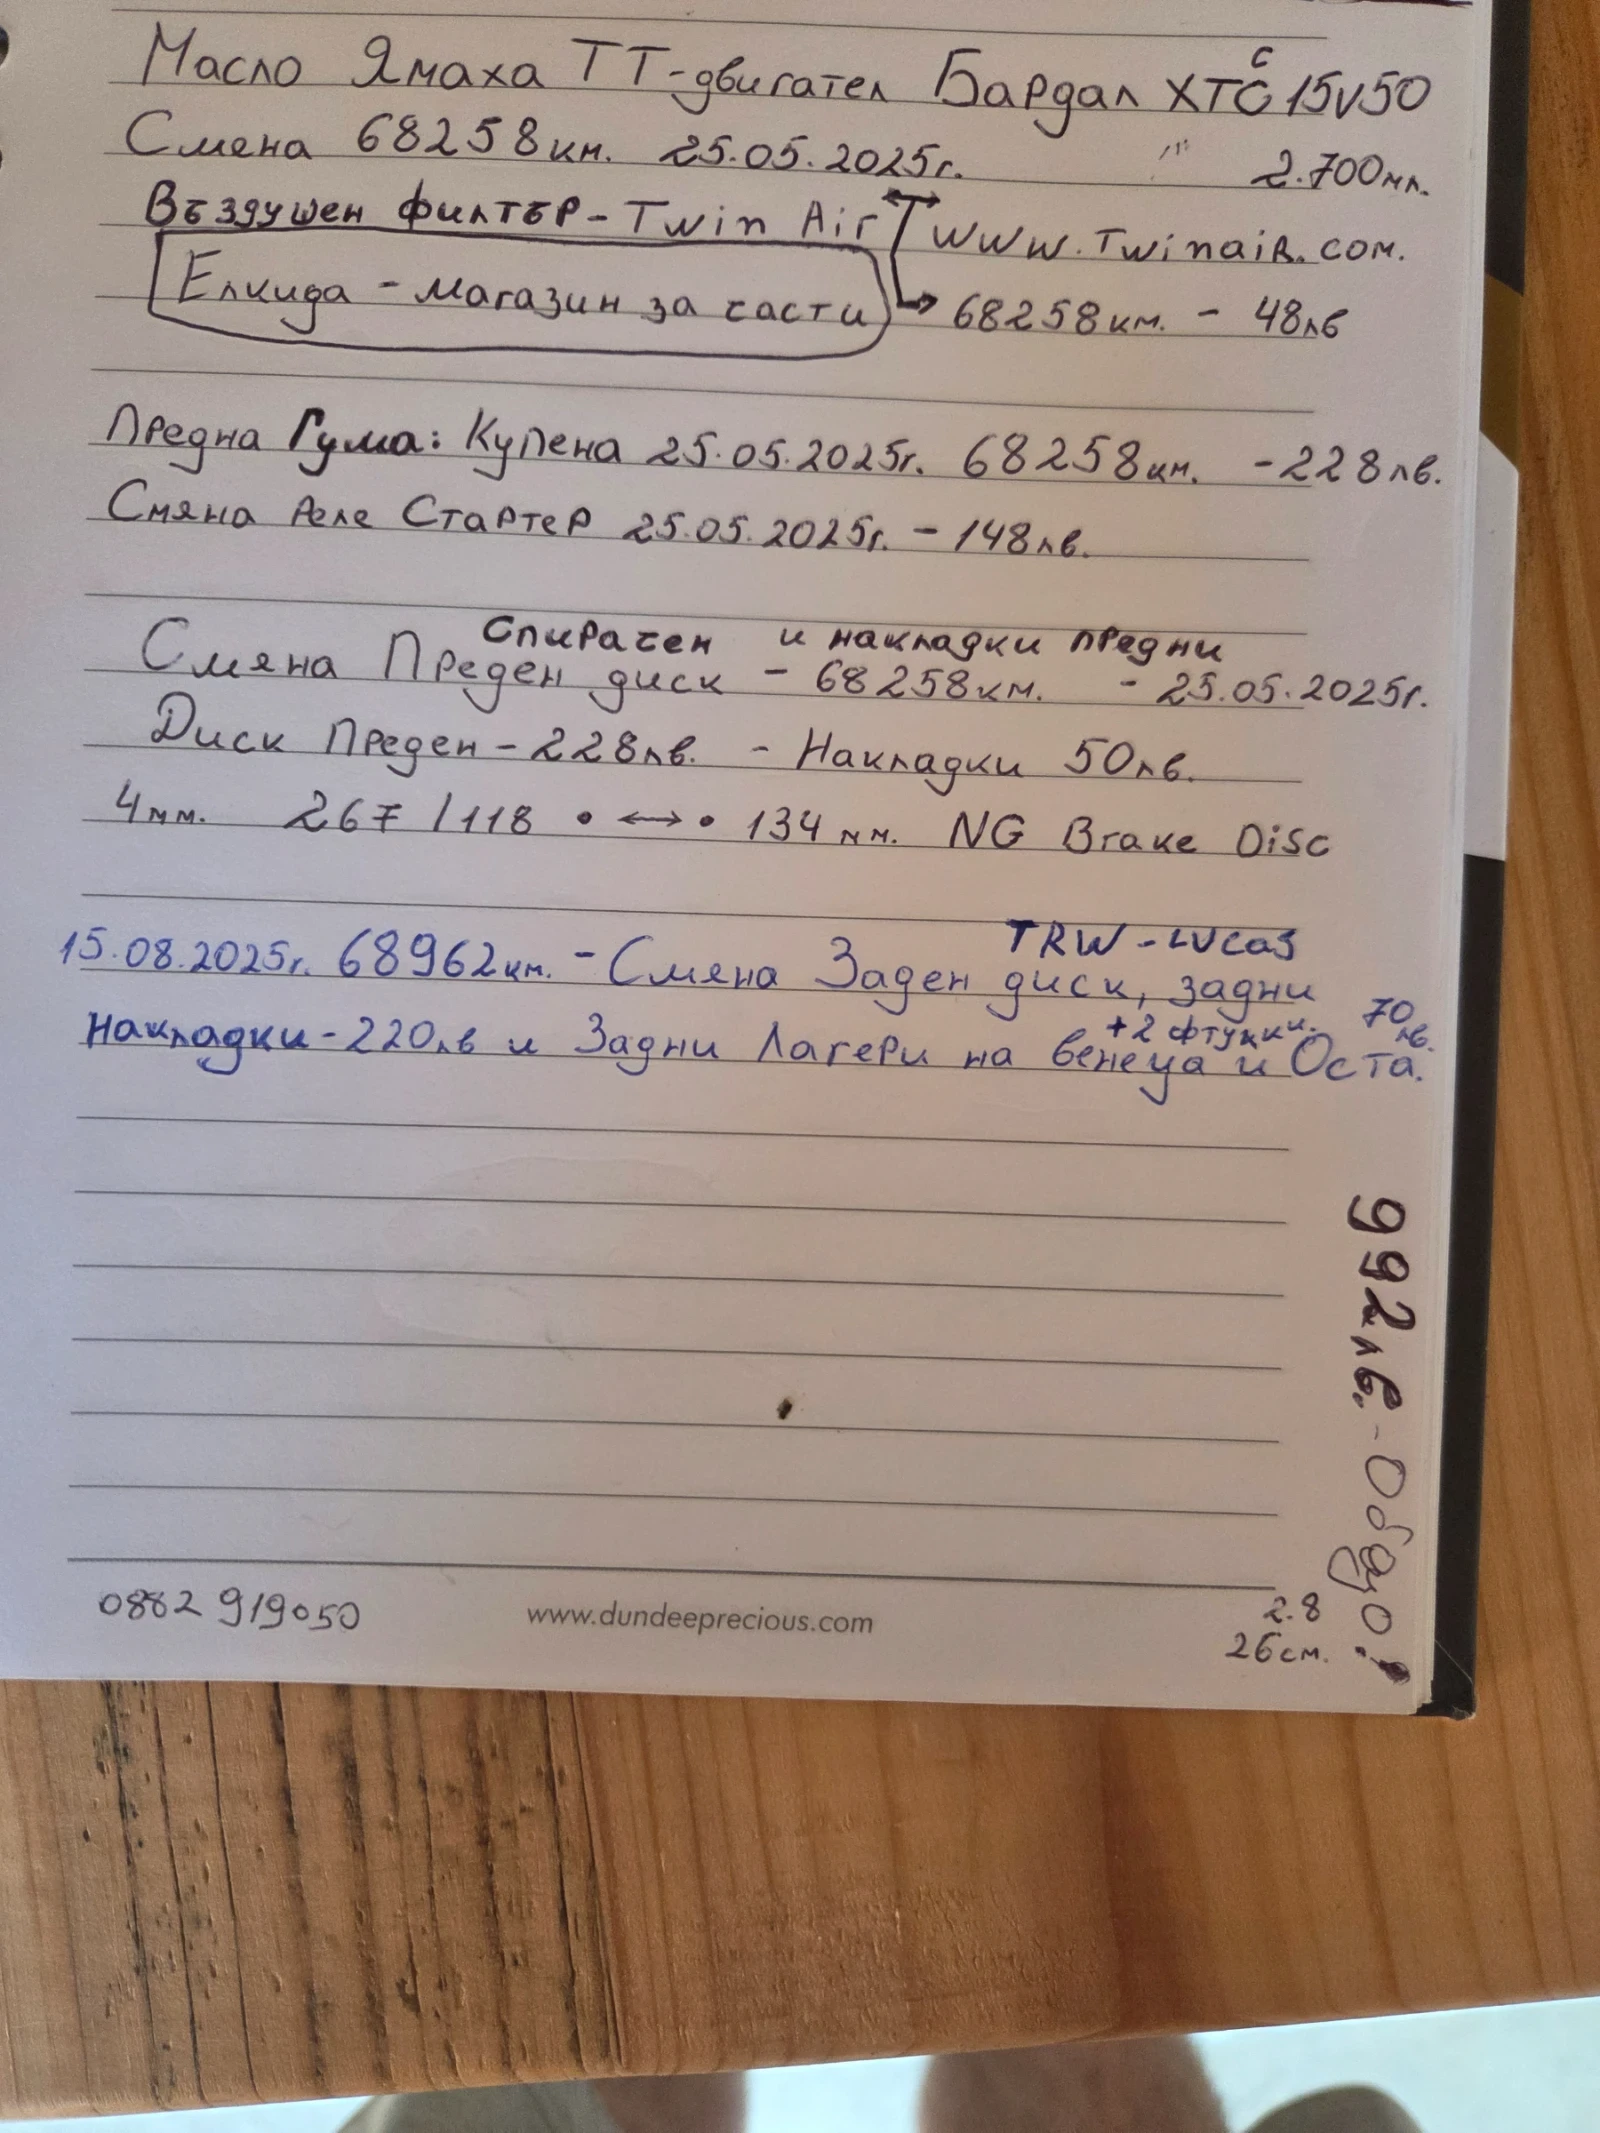 Масло Ямаха ТТ-двигател Бардал XTC C 15v50
Смена 68258км. 25.05.2025г. 2.700мл.
Въздушен филтър - Twin Air www.Twinair.com.
Елкида - магазин за части → 68258км. - 48лв
Предна Гума: Купена 25.05.2025г. 68258км. - 228лв.
Смяна Реле Стартер 25.05.2025г. - 148лв.
Спирачен и накладки предни
Смяна Преден диск - 68258км. - 25.05.2025г.
Диск Преден - 228лв. - Накладки 50лв.
4мм. 267 / 118 • ↔ • 134 мм. NG Brake Disc
TRW - LUCAS
15.08.2025г. 68962км. - Смяна Заден диск, задни
+2 фтулки. 70лв.
накладки - 220лв и Задни Лагери на венеца и Оста.
992лв. - Общо!
0882 919050
www.dundeeprecious.com
2.8
26см.